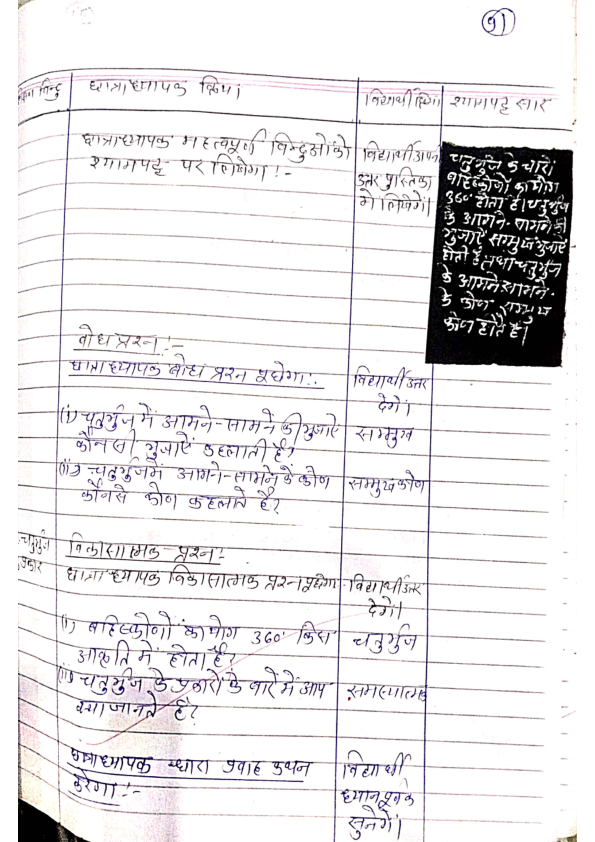 91
बिन्दु
छात्राध्यापक क्रिया।
विद्यार्थी क्रिया
श्यामपट्ट सार
छात्राध्यापक महत्वपूर्ण बिन्दुओं को
श्यामपट्ट पर लिखेगा :-
विद्यार्थी अपनी
उत्तर पुस्तिका
में लिखेंगे।
चतुर्भुज के चारों
बहिष्कोणों का योग
360° होता है। चतुर्भुज
के आमने-सामने की
भुजाएँ सम्मुख भुजाएँ
होती हैं तथा चतुर्भुज
के आमने-सामने-
के कोण सम्मुख
कोण होते हैं।
बोध प्रश्न :-
छात्राध्यापक बोध प्रश्न पूछेगा :-
विद्यार्थी उत्तर
देगें।
(i) चतुर्भुज में आमने-सामने की भुजाएँ
कौन सी भुजाएं कहलाती है?
सम्मुख
(ii) चतुर्भुज में आमने-सामने के कोण
कौनसे कोण कहलाते है?
सम्मुख कोण
चतुर्भुज
प्रकार
विकासात्मक प्रश्न :-
छात्राध्यापक विकासात्मक प्रश्न पूछेगा-
विद्यार्थी उत्तर
देगे।
(i) बहिस्कोणों का योग 360° किस
आकृति में होता है?
चतुर्भुज
(ii) चतुर्भुज के प्रकारों के बारे में आप
क्या जानते है?
समस्यात्मक
छात्राध्यापक धारा प्रवाह कथन
करेगा :-
विद्यार्थी
ध्यान पूर्वक
सुनेगें।